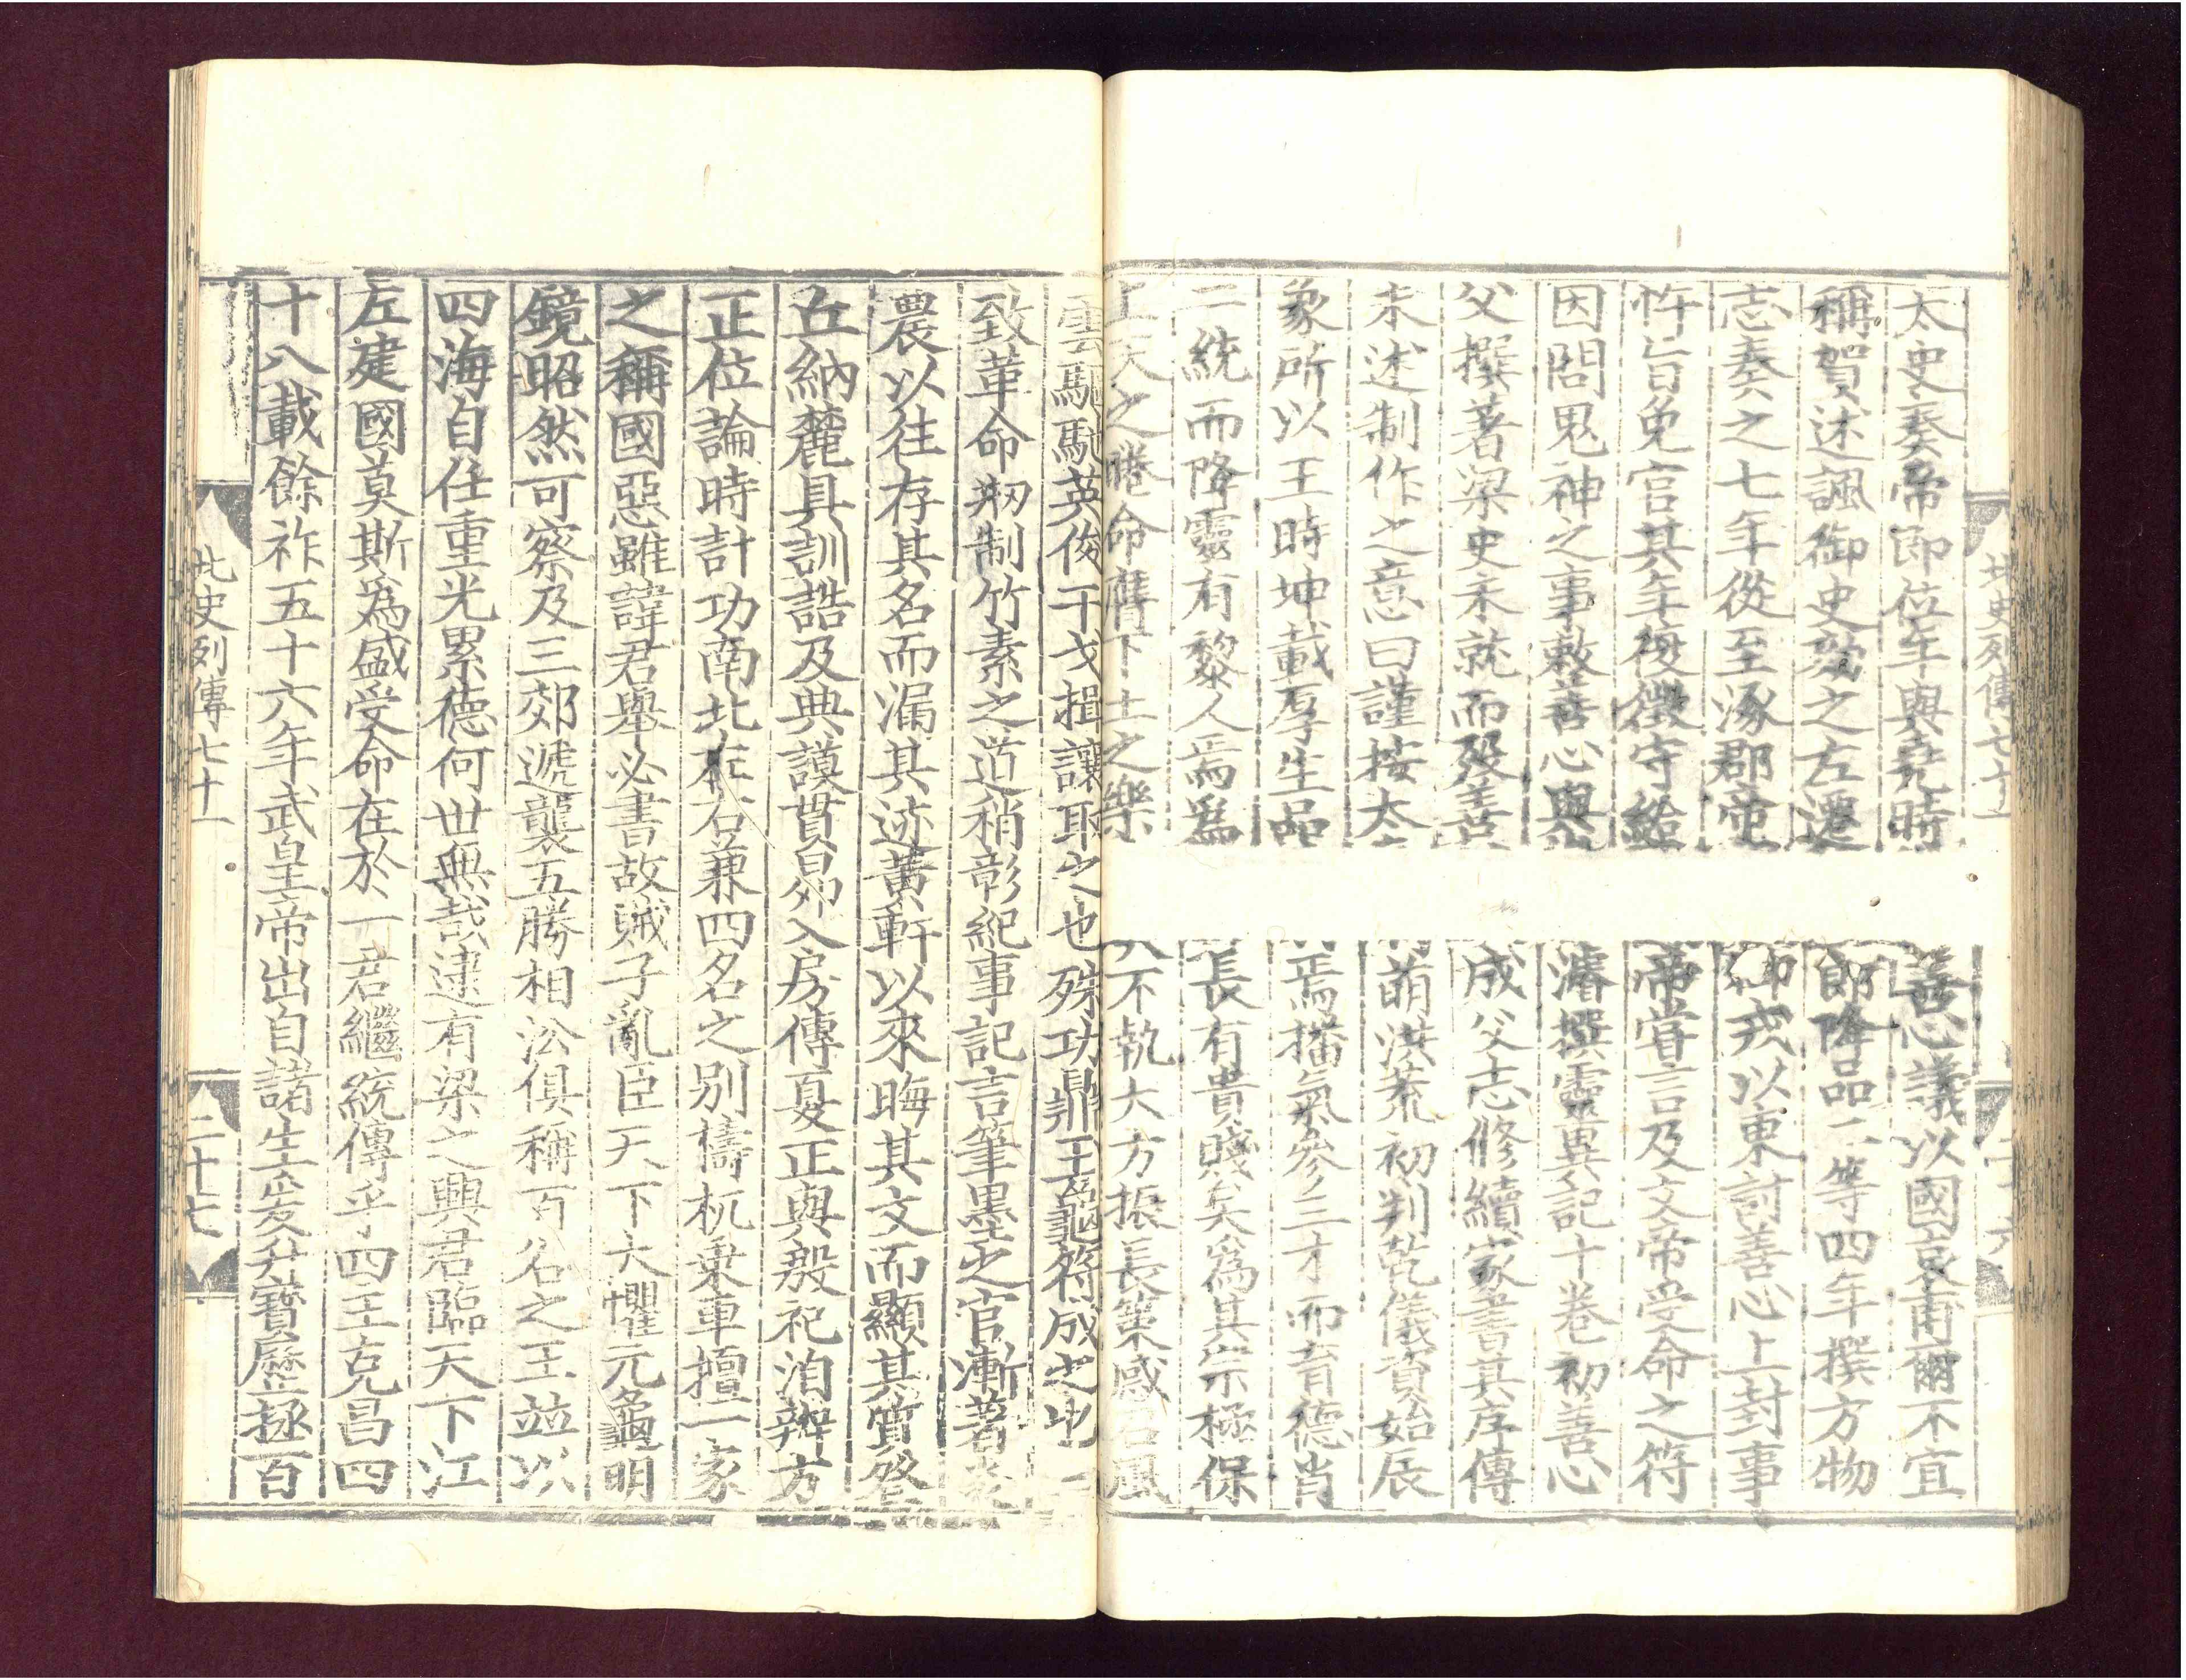 北史列傳七十一 二十六
太史奏帝即位年與堯時 善心議以國哀甫爾不宜
稱賀述諷御史劾之左遷 郎降品二等四年撰方物
志奏之七年從至涿郡帝 御戎以東討善心上封事
忤旨免官其年復徵守給 帝嘗言及文帝受命之符
因問鬼神之事敕善心與 濬撰靈異記十卷初善心
父撰著梁史未就而歿善 成父志修續家書其序傳
末述制作之意曰謹按太 萌洪荒初判乾儀資始辰
象所以正時坤載厚生品 焉播氣參三才而育德肖
二統而降靈有黎人焉爲 長有貴賤矣爲其宗極保
上天之睠命膺下土之樂 不執大方振長策感召風
雲驅馳英俊干戈揖讓取之也殊功鼎玉龜符成之也一
致革命刱制竹素之道稍彰紀事記言筆墨之官漸著炎
農以往存其名而漏其迹黃軒以來晦其文而顯其質登
丘納麓具訓誥及典謨貫昴入房傳夏正與殷祀洎辨方
正位論時計功南北左右兼四名之別檮杌乗車擅一家
之稱國惡雖諱君舉必書故賊子亂臣天下大懼元龜明
鏡昭然可察及三郊遞襲五勝相沿俱稱百名之王並以
四海自任重光累德何世無哉逮有梁之興君臨天下江
左建國莫斯爲盛受命在於一君繼統傳乎四王克昌四
十八載餘祚五十六年武皇帝出自諸生爰升寶曆拯百
北史列傳七十一 二十七